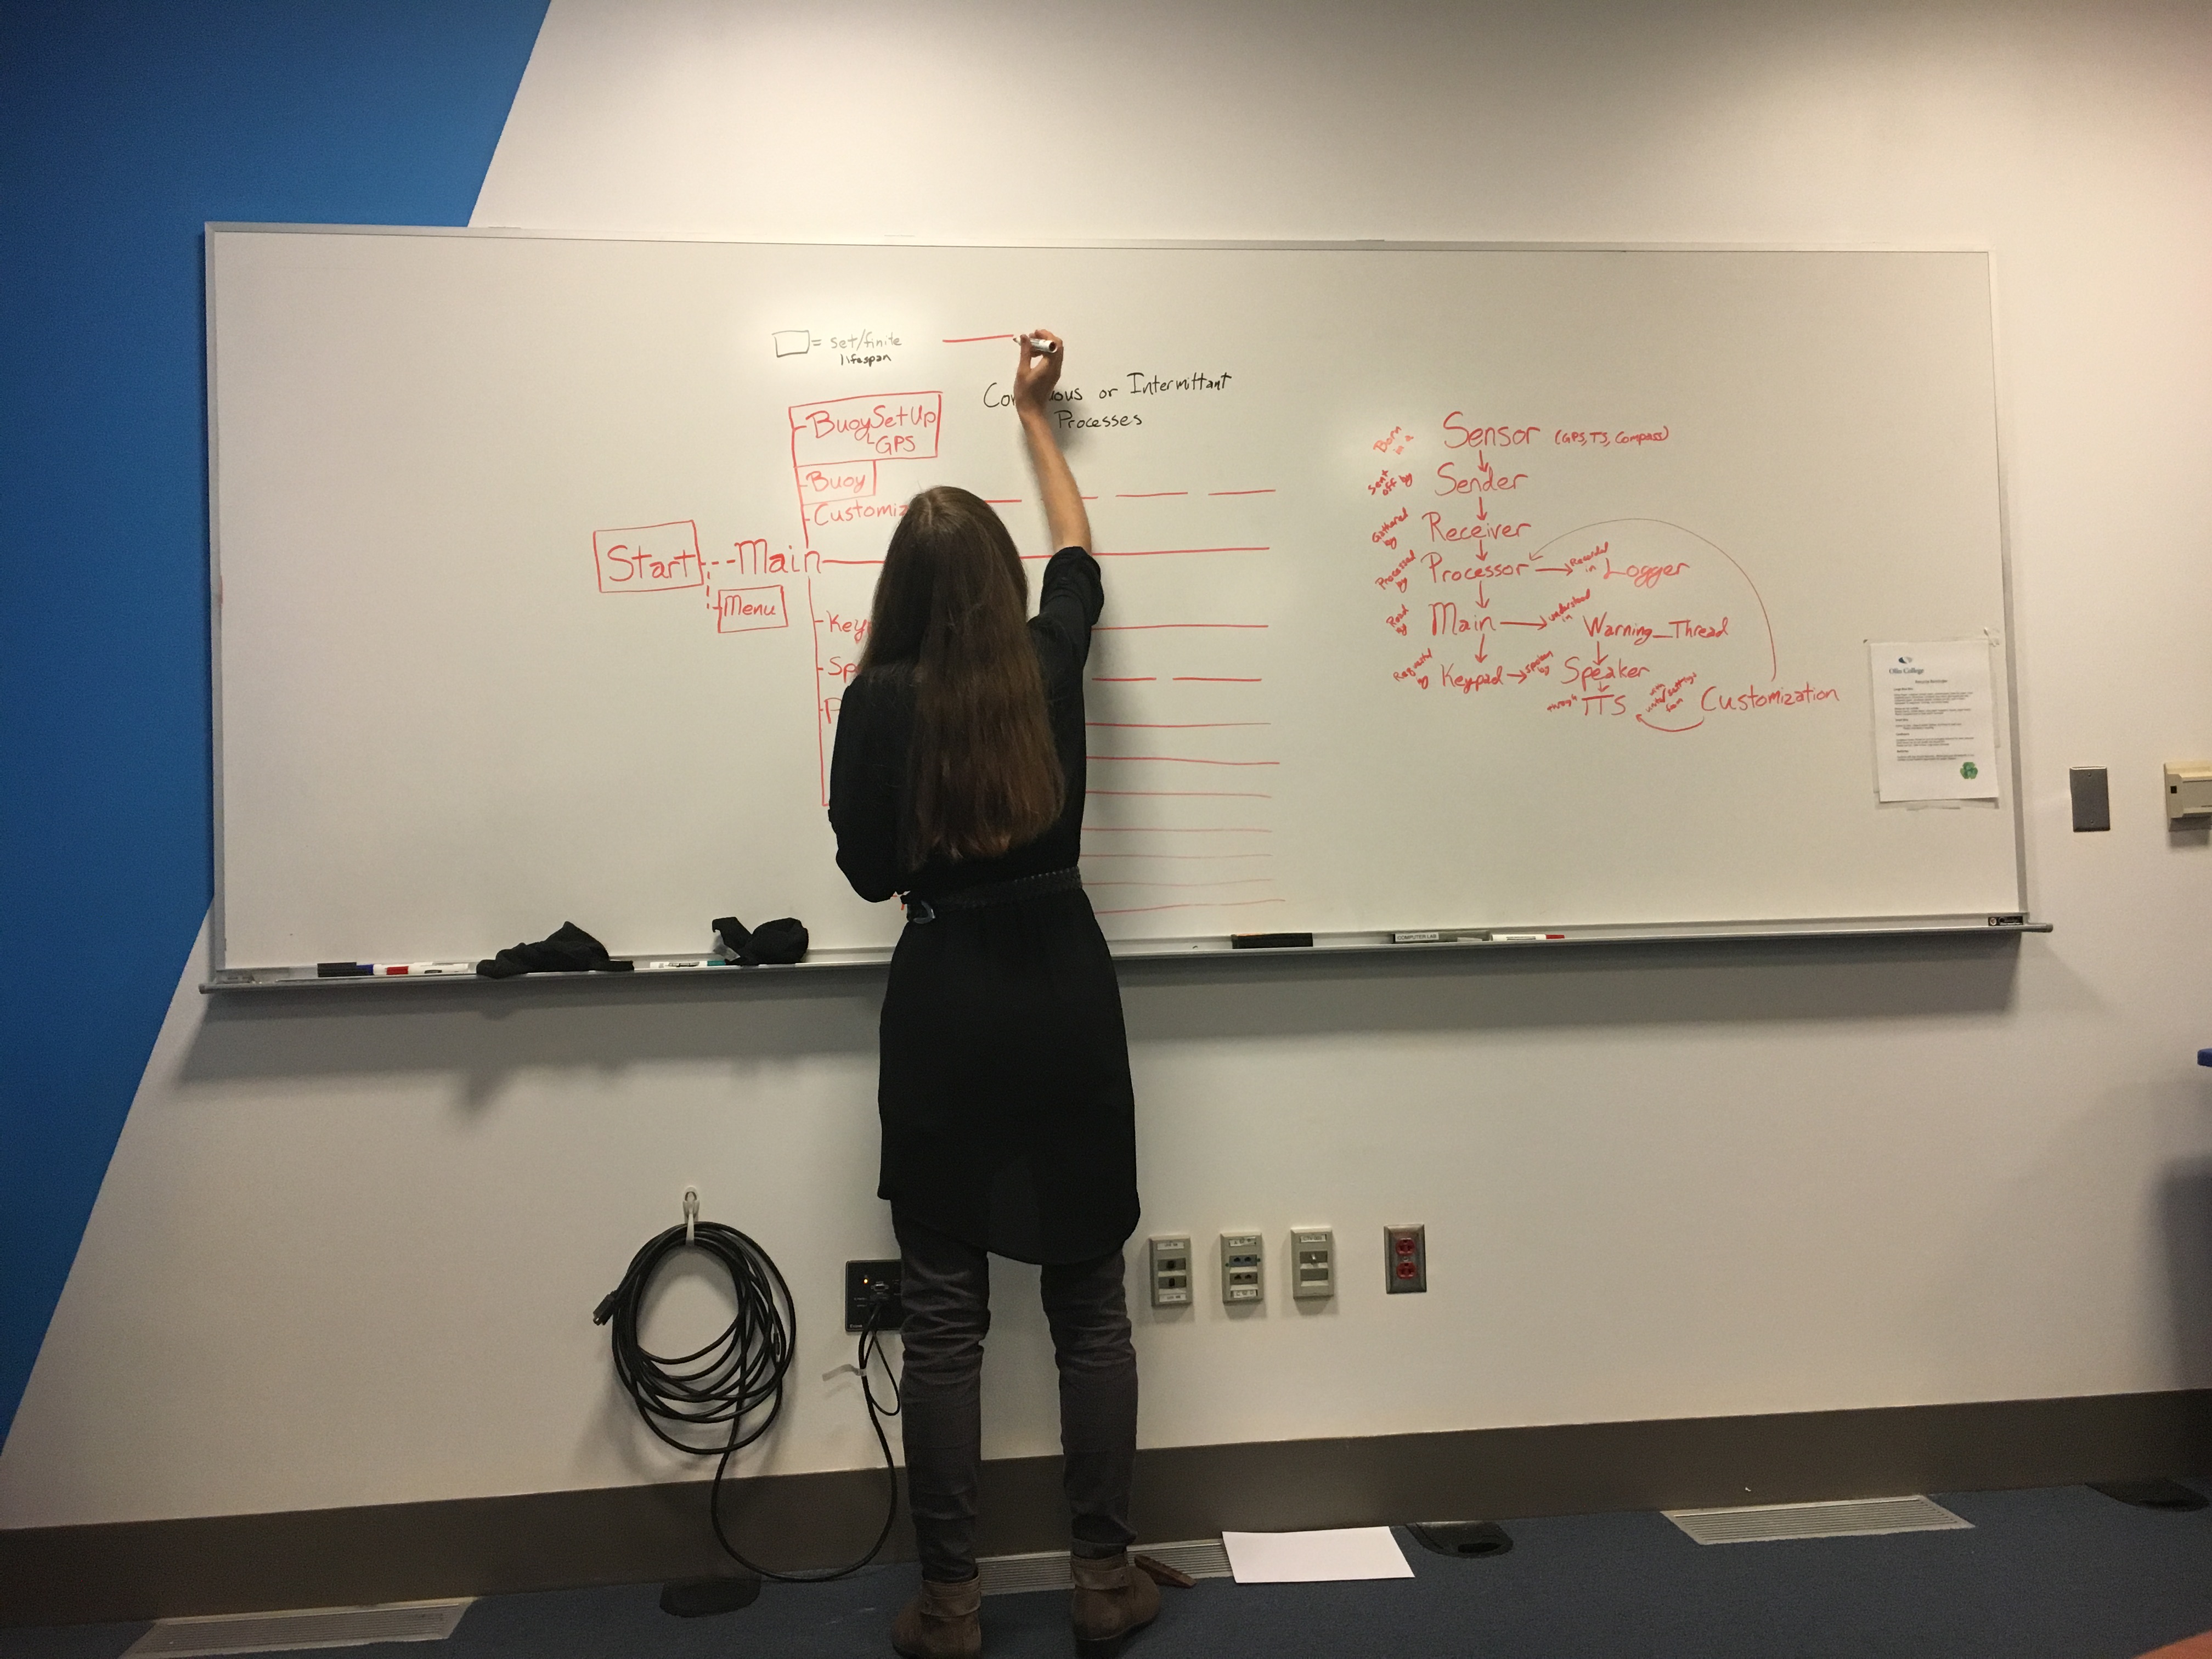 = set/finite
lifespan
or Intermittant
Processes
BuoySetUp
GPS
Buoy
Start
Main
Menu
Born in a
Sensor (GPS, TS, Compass)
Sent off by
Sender
Gathered by
Receiver
Processed by
Processor
Recorded in
Logger
Read by
Main
understood in
Warning_Thread
Requested by
Keypad
spoken by
Speaker
through
TTS
Customization
Olin College
COMPUTER LAB